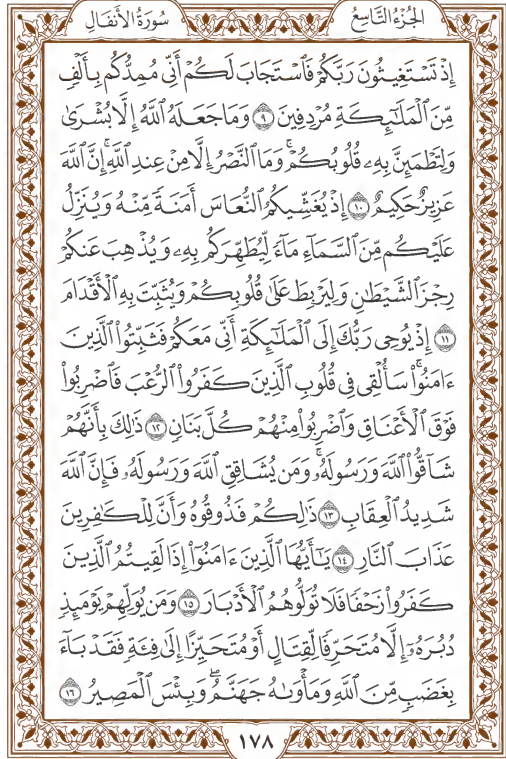 الجُزْءُ التَّاسِعُ
سُورَةُ الأَنفَالِ
إِذْ تَسْتَغِيثُونَ رَبَّكُمْ فَٱسْتَجَابَ لَكُمْ أَنِّي مُمِدُّكُم بِأَلْفٍ
مِّنَ ٱلْمَلَٰٓئِكَةِ مُرْدِفِينَ ٩ وَمَا جَعَلَهُ ٱللَّهُ إِلَّا بُشْرَىٰ
وَلِتَطْمَئِنَّ بِهِۦ قُلُوبُكُمْۚ وَمَا ٱلنَّصْرُ إِلَّا مِنْ عِندِ ٱللَّهِۚ إِنَّ ٱللَّهَ
عَزِيزٌ حَكِيمٌ ١٠ إِذْ يُغَشِّيكُمُ ٱلنُّعَاسَ أَمَنَةً مِّنْهُ وَيُنَزِّلُ
عَلَيْكُم مِّنَ ٱلسَّمَآءِ مَآءً لِّيُطَهِّرَكُم بِهِۦ وَيُذْهِبَ عَنكُمْ
رِجْزَ ٱلشَّيْطَٰنِ وَلِيَرْبِطَ عَلَىٰ قُلُوبِكُمْ وَيُثَبِّتَ بِهِ ٱلْأَقْدَامَ
١١ إِذْ يُوحِي رَبُّكَ إِلَى ٱلْمَلَٰٓئِكَةِ أَنِّي مَعَكُمْ فَثَبِّتُوا۟ ٱلَّذِينَ
ءَامَنُوا۟ۚ سَأُلْقِي فِي قُلُوبِ ٱلَّذِينَ كَفَرُوا۟ ٱلرُّعْبَ فَٱضْرِبُوا۟
فَوْقَ ٱلْأَعْنَاقِ وَٱضْرِبُوا۟ مِنْهُمْ كُلَّ بَنَانٍ ١٢ ذَٰلِكَ بِأَنَّهُمْ
شَآقُّوا۟ ٱللَّهَ وَرَسُولَهُۥۚ وَمَن يُشَاقِقِ ٱللَّهَ وَرَسُولَهُۥ فَإِنَّ ٱللَّهَ
شَدِيدُ ٱلْعِقَابِ ١٣ ذَٰلِكُمْ فَذُوقُوهُ وَأَنَّ لِلْكَٰفِرِينَ
عَذَابَ ٱلنَّارِ ١٤ يَٰٓأَيُّهَا ٱلَّذِينَ ءَامَنُوٓا۟ إِذَا لَقِيتُمُ ٱلَّذِينَ
كَفَرُوا۟ زَحْفًا فَلَا تُوَلُّوهُمُ ٱلْأَدْبَارَ ١٥ وَمَن يُوَلِّهِمْ يَوْمَئِذٍ
دُبُرَهُۥٓ إِلَّا مُتَحَرِّفًا لِّقِتَالٍ أَوْ مُتَحَيِّزًا إِلَىٰ فِئَةٍ فَقَدْ بَآءَ
بِغَضَبٍ مِّنَ ٱللَّهِ وَمَأْوَىٰهُ جَهَنَّمُۖ وَبِئْسَ ٱلْمَصِيرُ ١٦
١٧٨